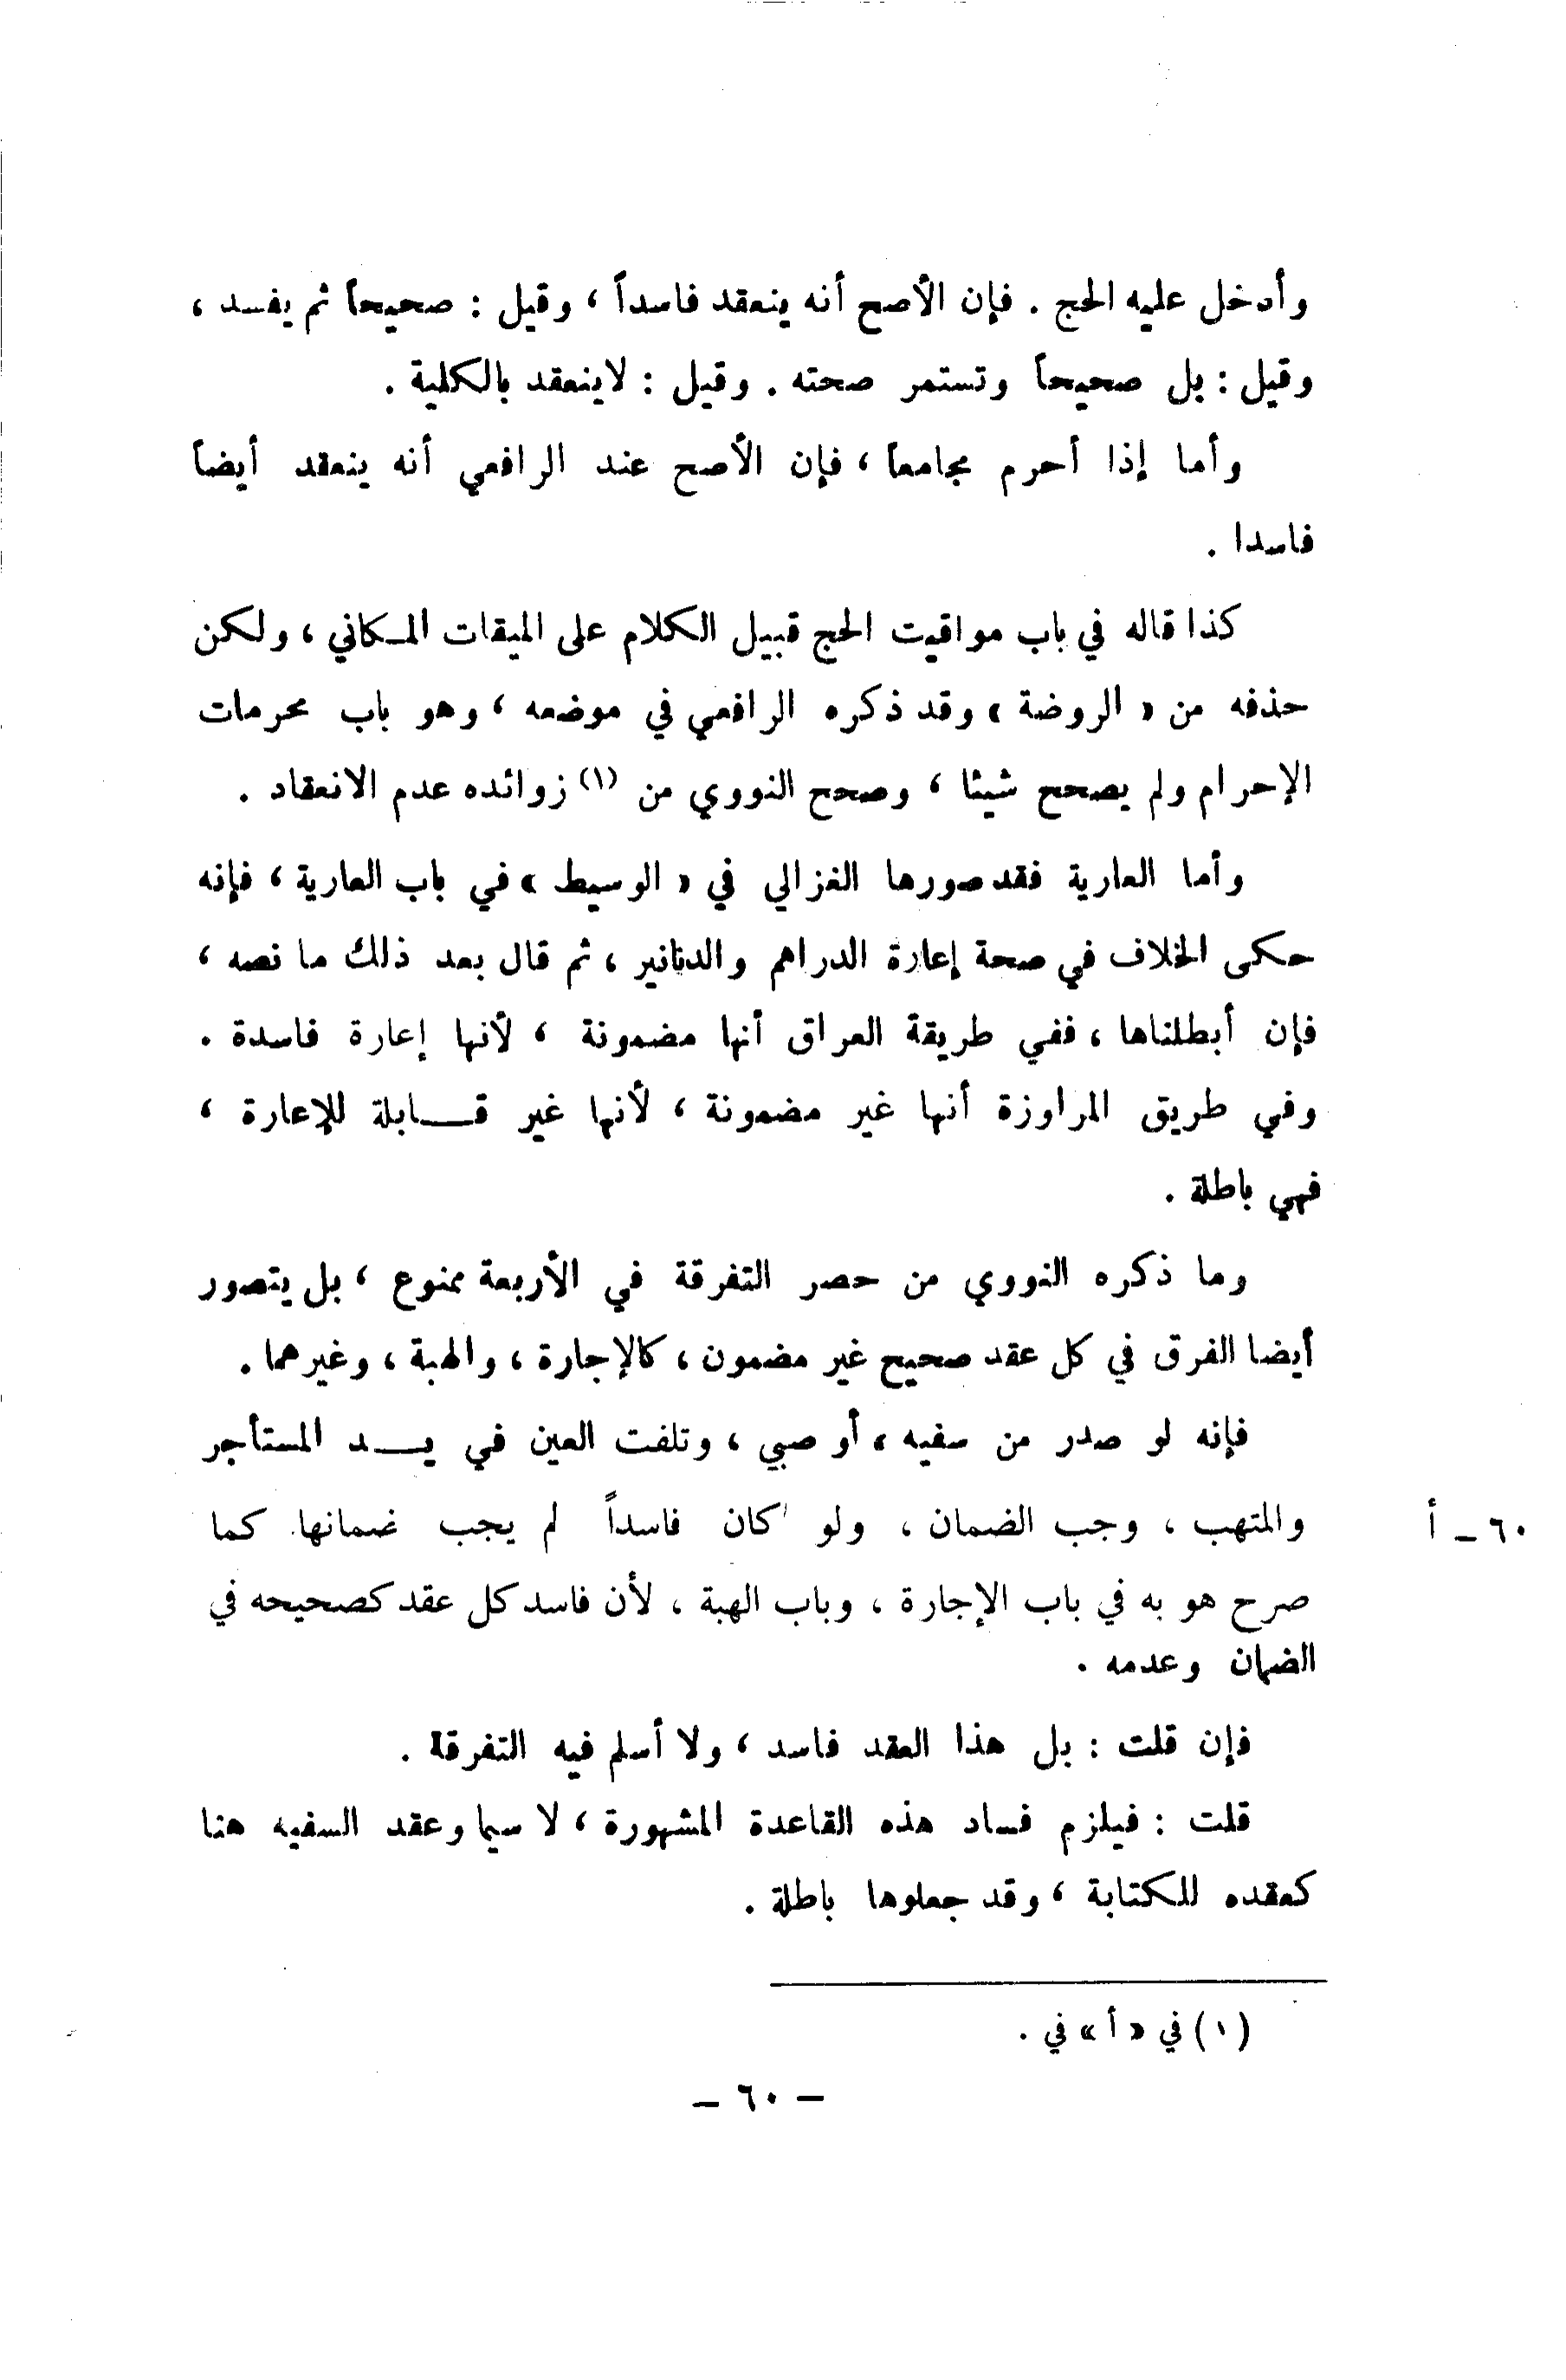 وأدخل عليه الحج . فإن الأصح أنه ينعقد فاسداً ، وقيل : صحيحاً ثم يفسد ،
وقيل : بل صحيحاً وتستمر صحته . وقيل : لاينعقد بالكلية .
وأما إذا أحرم مجامعاً ، فإن الأصح عند الرافعي أنه ينعقد أيضاً
فاسدا .
كذا قاله في باب مواقيت الحج قبيل الكلام على الميقات المـكاني ، ولكن
حذفه من « الروضة » وقد ذكره الرافعي في موضعه ، وهو باب محرمات
الإحرام ولم يصحح شيئا ، وصحح النووي من (١) زوائده عدم الانعقاد .
وأما العارية فقد صورها الغزالي في « الوسيط » في باب العارية ، فإنه
حكى الخلاف في صحة إعارة الدراهم والدنانير ، ثم قال بعد ذلك ما نصه ،
فإن أبطلناها ، ففي طريقة العراق أنها مضمونة ، لأنها إعارة فاسدة .
وفي طريق المراوزة أنها غير مضمونة ، لأنها غير قـــابلة للإعارة ،
فهي باطلة .
وما ذكره النووي من حصر التفرقة في الأربعة ممنوع ، بل يتصور
أيضا الفرق في كل عقد صحيح غير مضمون ، كالإجارة ، والهبة ، وغيرهما .
فإنه لو صدر من سفيه ، أو صبي ، وتلفت العين في يـــد المستأجر
والمتهب ، وجب الضمان ، ولو كان فاسداً لم يجب ضمانها . كما
٦٠ ـ أ
صرح هو به في باب الإجارة ، وباب الهبة ، لأن فاسد كل عقد كصحيحه في
الضمان وعدمه .
فإن قلت : بل هذا العقد فاسد ، ولا أسلم فيه التفرقة .
قلت : فيلزم فساد هذه القاعدة المشهورة ، لا سيما وعقد السفيه هنا
كعقده للكتابة ، وقد جعلوها باطلة .
(١) في « أ » في .
ـ ٦٠ ـ